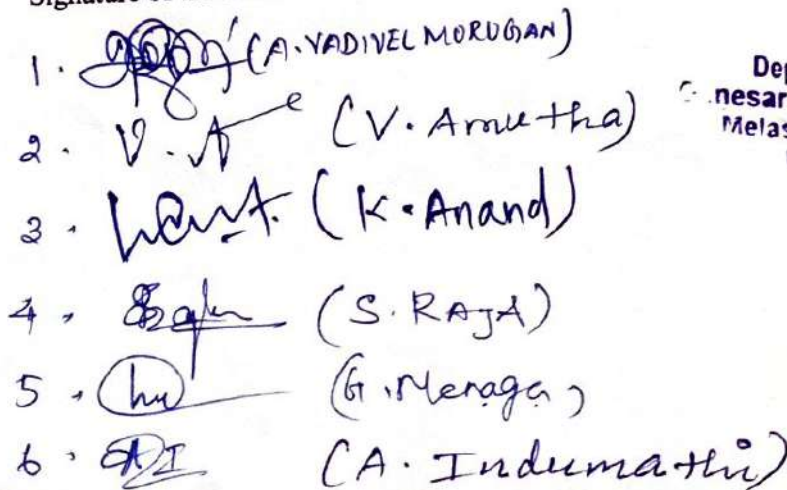 Signature of
1. (A. VADIVEL MURUGAN)
2. V. A (V. Amutha)
3. (K. Anand)
4. (S. RAJA)
5. (G. Menaga)
6. AI (A. Indumathi)
Dep
nesar
Melas